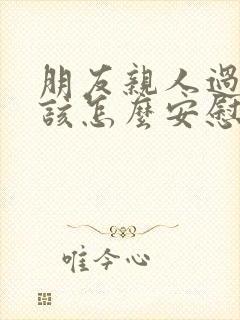 朋友親人過
該怎麼安慰
唯今心